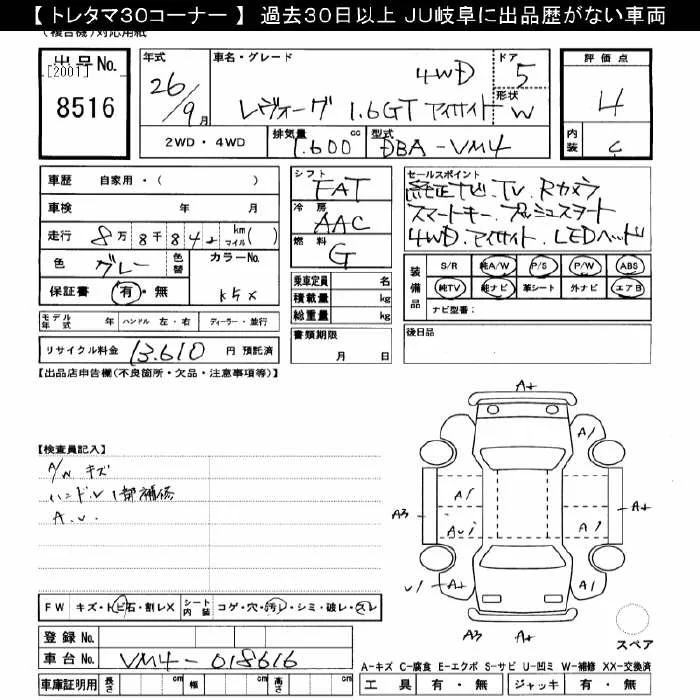 【 トレタマ30コーナー 】 過去30日以上 JU岐阜に出品歴がない車両
(複合機)対応用紙
出品No. [2001] 8516
年式 26/9月
車名・グレード 4WD
レヴォーグ 1.6GT アイサイト
ドア 5
形状 W
評価点 4
内装 C
2WD・4WD
排気量 1,600 cc
型式 DBA-VM4
車歴 自家用・( )
車検 年 月
走行 8万8千84 km マイル( )
色 グレー 色替 カラーNo. K5X
保証書 有・無
モデル年式 年 ハンドル 左・右 ディーラー・並行
リサイクル料金 13,610 円 預託済
シフト FAT
冷房 AAC
燃料 G
乗車定員 名
積載量 kg
総重量 kg
書類期限
月 日
セールスポイント
純正ナビ.TV.Rカメラ
スマートキー.プッシュスタート
4WD.アイサイト.LEDヘッド
装備品 S/R 純A/W P/S P/W ABS
純TV 純ナビ 革シート 外ナビ エアB
ナビ型番:
後日品
【出品店申告欄(不良箇所・欠品・注意事項等)】
【検査員記入】
A/W キズ
ハンドル 1部補修
A.U.
A+
A1
A3 A1 A+
AU1 A1
U1 A+ A+
A3 A+
スペア
FW キズ・トビ石・割レX シート内装 コゲ・穴・汚レ・シミ・破レ・スレ
登録 No.
車台 No. VM4-018616
車庫証明用 長さ cm 幅 cm 高さ cm
A-キズ C-腐食 E-エクボ S-サビ U-凹ミ W-補修 XX-交換済
工具 有・無 ジャッキ 有・無